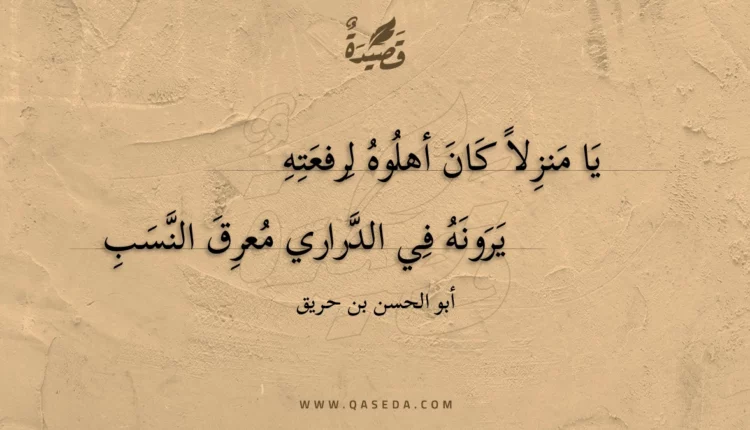 قَصِيدَةٌ
يَا مَنزِلاً كَانَ أهلُوهُ لِرِفعَتِهِ
يَرَونَهُ فِي الدَّراري مُعرِقَ النَّسَبِ
أبو الحسن بن حريق
WWW.QASEDA.COM